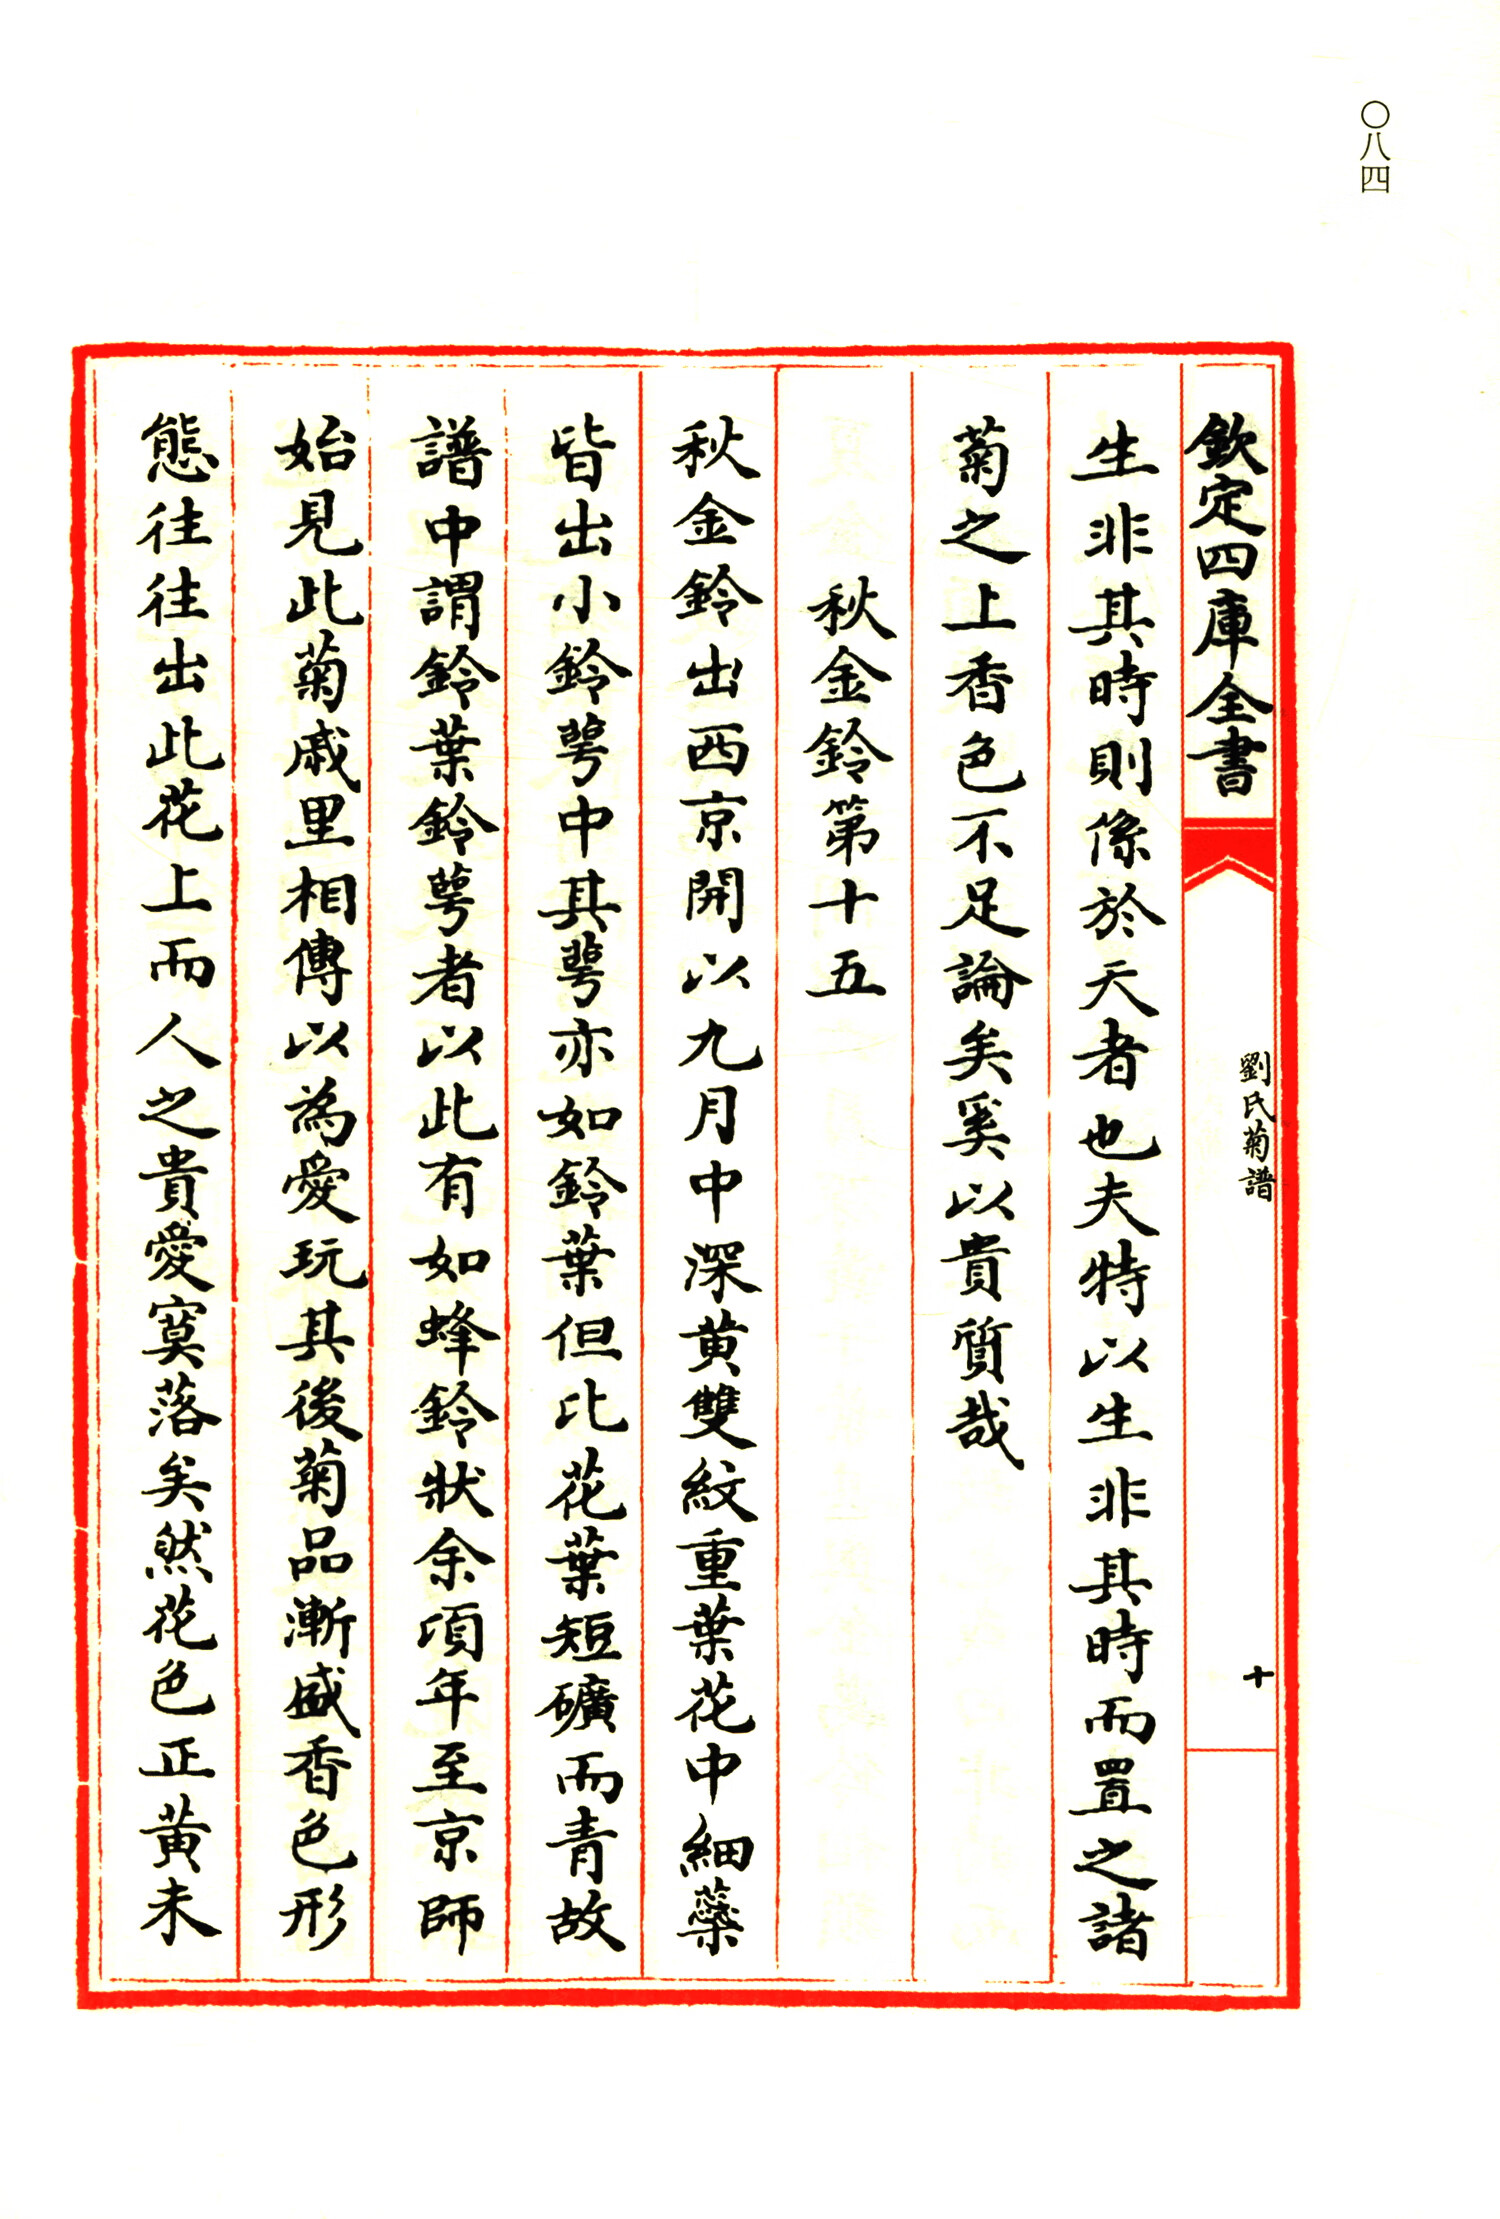 〇八四
欽定四庫全書
劉氏菊譜
十
生非其時則係於天者也夫特以生非其時而置之諸
菊之上香色不足論矣奚以貴質哉
秋金鈴第十五
秋金鈴出西京開以九月中深黄雙紋重葉花中細蘂
皆出小鈴萼中其萼亦如鈴葉但比花葉短礦而青故
譜中謂鈴葉鈴萼者以此有如蜂鈴狀余頃年至京師
始見此菊戚里相傳以為愛玩其後菊品漸盛香色形
態往往出此花上而人之貴愛寞落矣然花色正黄未